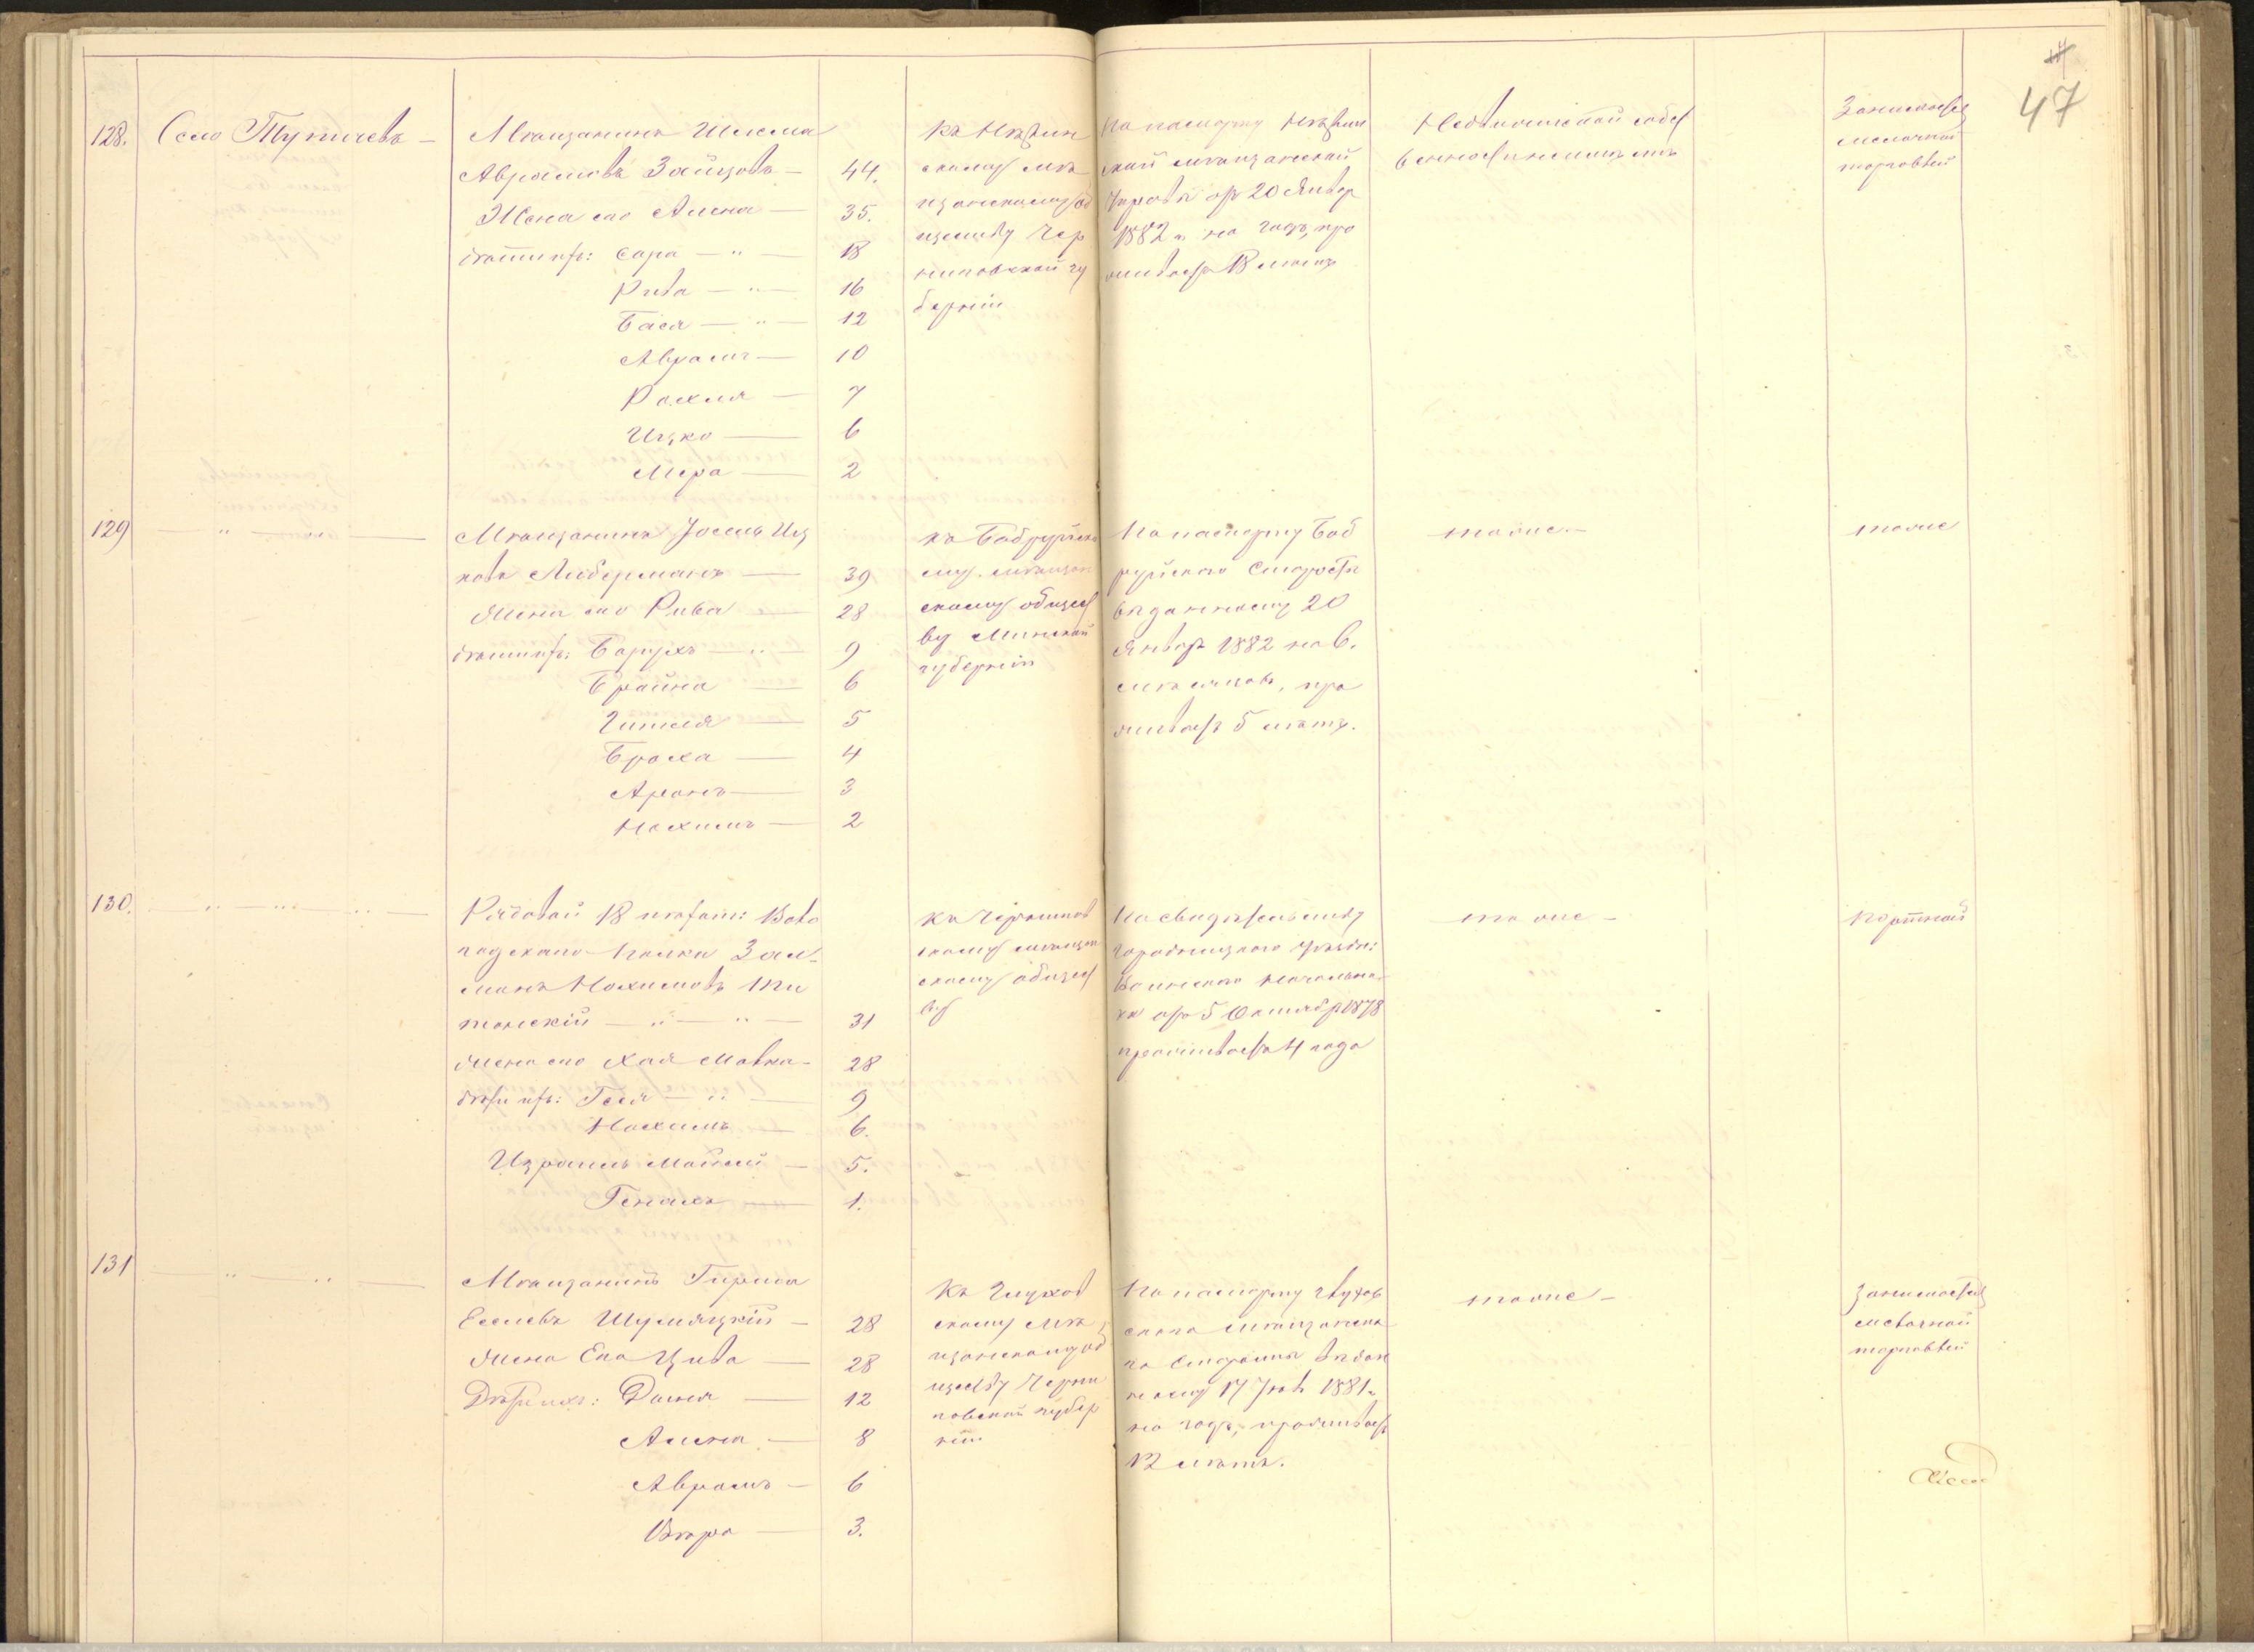 47
128.
Село Тупичевъ —
Мѣщанинъ Шлема
Аврамовъ Зайцовъ — 44.
Жена его Алена — 35.
дѣти ихъ: Сара — " — 18
Рива — " — 16
Бася — " — 12
Аврамъ — 10
Рохля — 7
Ицко — 6
Мера — 2
Къ Нѣжин
скому мѣ
щанскому об
ществу Чер
ниговской гу
берніи
По паспорту Нѣжин
ской мѣщанской
Управы отъ 20 Январ
1882 г. на годъ, про
живаетъ 18 лѣтъ
Недвижимой собст
венности неимѣетъ
Занимается
мелочной
торговлей
129
— " — " —
Мѣщанинъ Іосель Иц
ковъ Либерманъ — 39
жена его Рива — 28
дѣти ихъ: Борухъ — " — 9
Брайна — 6
Гителя — 5
Броха — 4
Аронъ — 3
Нохимъ — 2
къ Бобруйско
му мѣщан
скому общест
ву Минской
губерніи
По паспорту Боб
руйскаго Старосты
выданному 20
Январ 1882 на 6.
мѣсяцовъ, про
живаетъ 5 лѣтъ.
тоже —
тоже
130.
— " — " — " —
Рядовой 18 пѣхот: Воло
годскаго полка Зал-
манъ Нохимовъ
31
жена его Хая Мовка — 28
дѣти ихъ: Геся — " — 9
Нохимъ — 6.
Израиль — 5.
Генахъ — 1.
къ Чернигов
скому мѣщан
скому общест
ву
По свидѣтельству
Городницкаго уѣздн:
Воинскаго Начальни-
ка отъ 5 Октября 1878
проживаетъ 4 года
тоже —
портной
131
— " — " —
Мѣщанинъ Гирша
Еселевъ Шумяцкій — 28
жена Его Цива — 28
Дѣти ихъ: Доня — 12
Алена — 8
Аврамъ — 6
Вѣра — 3.
Къ Глухов
скому мѣ
щанскому об
ществу Черни
говской губер
ніи
По паспорту Глухов
скаго мѣщанска
го Старосты выдан
ному 17 1881 г.
на годъ, проживаетъ
12 лѣтъ.
тоже —
занимается
мелочной
торговлей